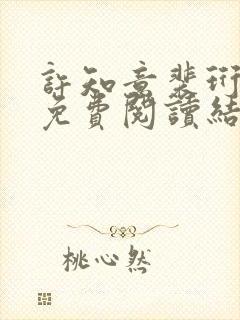 許知意裴珩
免費閱讀結
桃心然